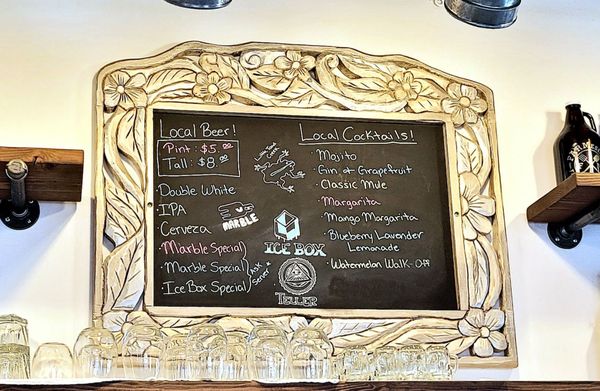 Local Beer!
Pint: $5.00
Tall: $8.00
Double White
IPA
Cerveza
Marble Special
Marble Special
Ice Box Special
Ask
Server*
MARBLE
ICE BOX
TELLER
Local Cocktails!
· Mojito
· Gin & Grapefruit
· Classic Mule
· Margarita
· Mango Margarita
· Blueberry Lavender
Lemonade
· Watermelon Walk-Off